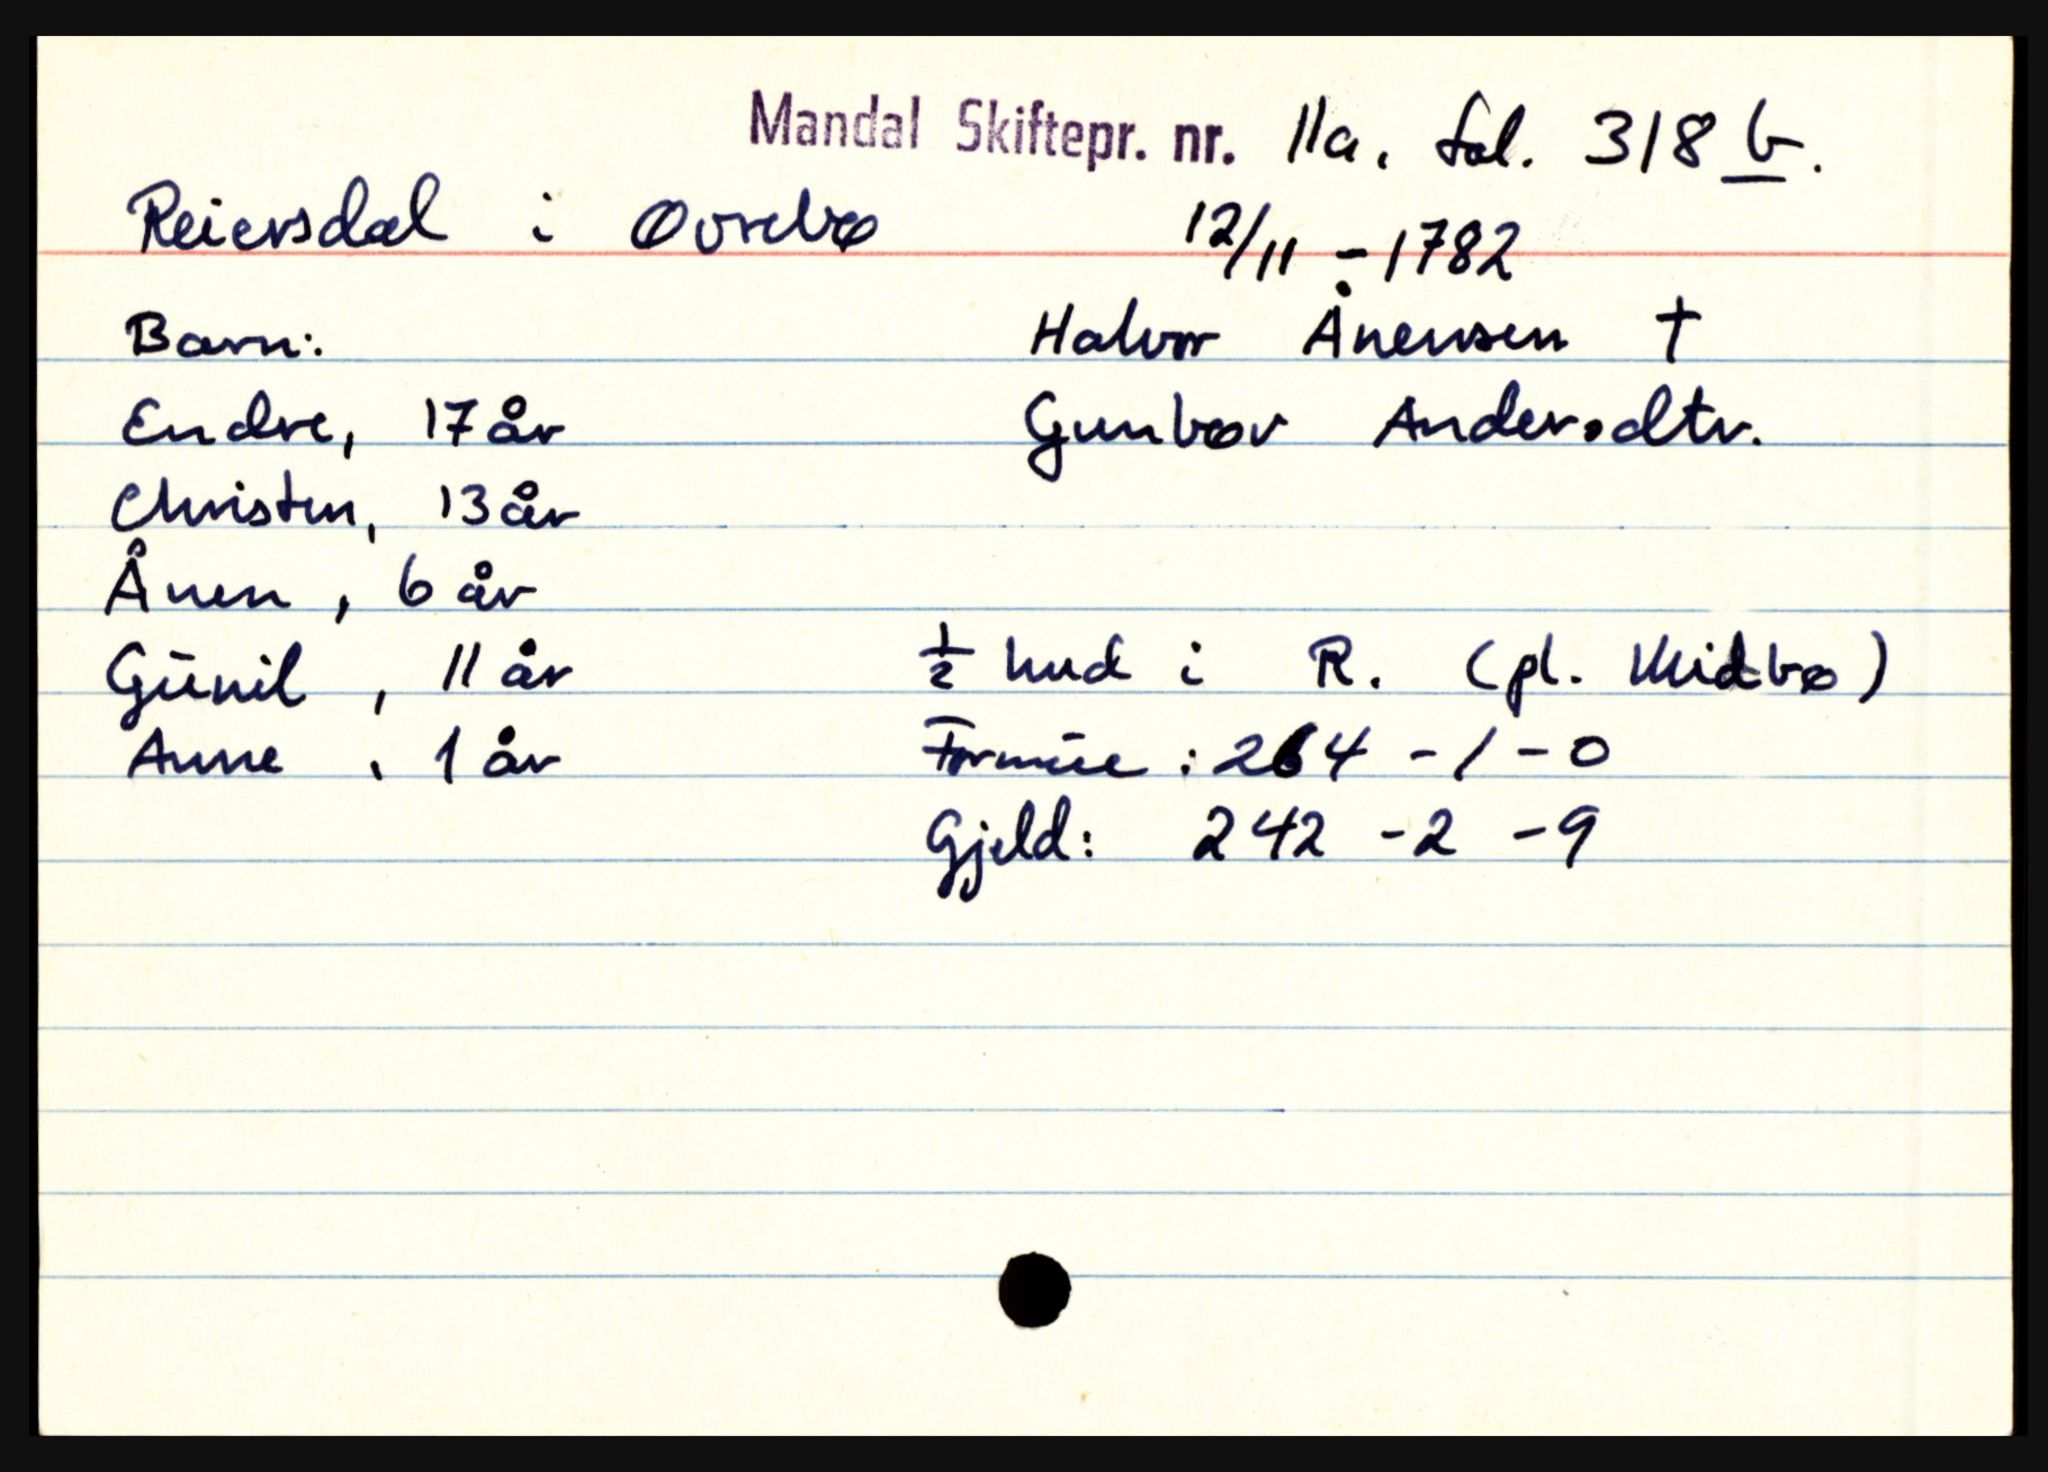 Mandal Skiftepr. nr. 11a, fol. 318 b.
Reiersdal i Øvrebø 12/11 - 1782
Barn: Halvor Ånensen †
Endre, 17 år Gunbor Andersdtr.
Christen, 13 år
Ånen, 6 år
Gūnil, 11 år ½ hud i R. (pl. Midbø)
Anne, 1 år Formūe: 264 - 1 - 0
Gjeld: 242 - 2 - 9